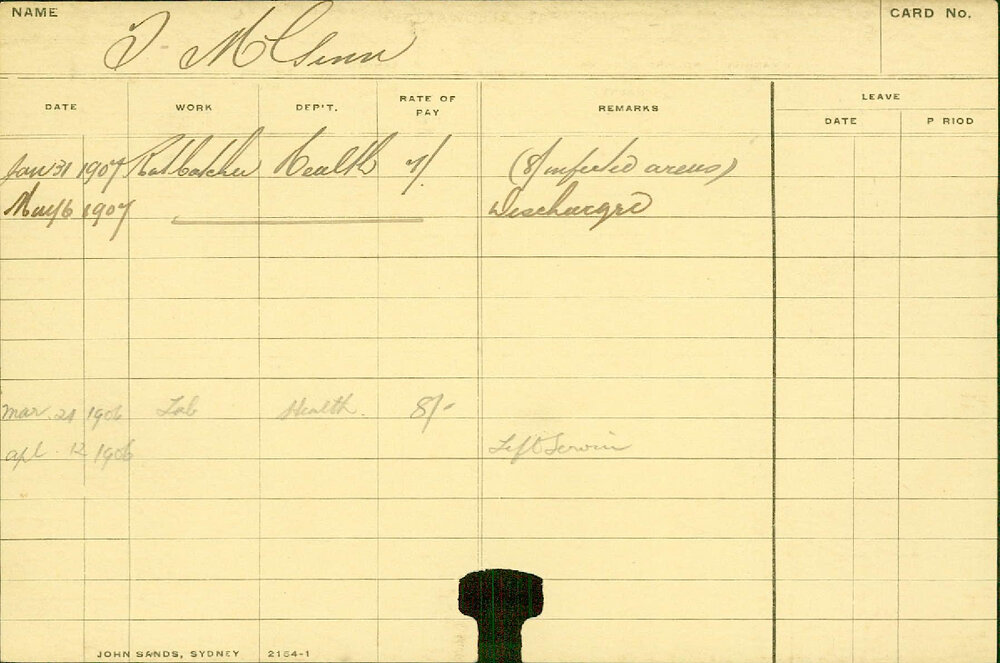 NAME T McGinn CARD No.
DATE WORK DEP'T. RATE OF PAY REMARKS LEAVE
DATE P RIOD
Jan 31 1907 Ratcatcher Health 7/ (8/ infected areas)
May 6 1907 Discharged
Mar 21 1906 Lab Health. 8/-
Apl. 12 1906 Left Service
JOHN SANDS, SYDNEY 2154-1